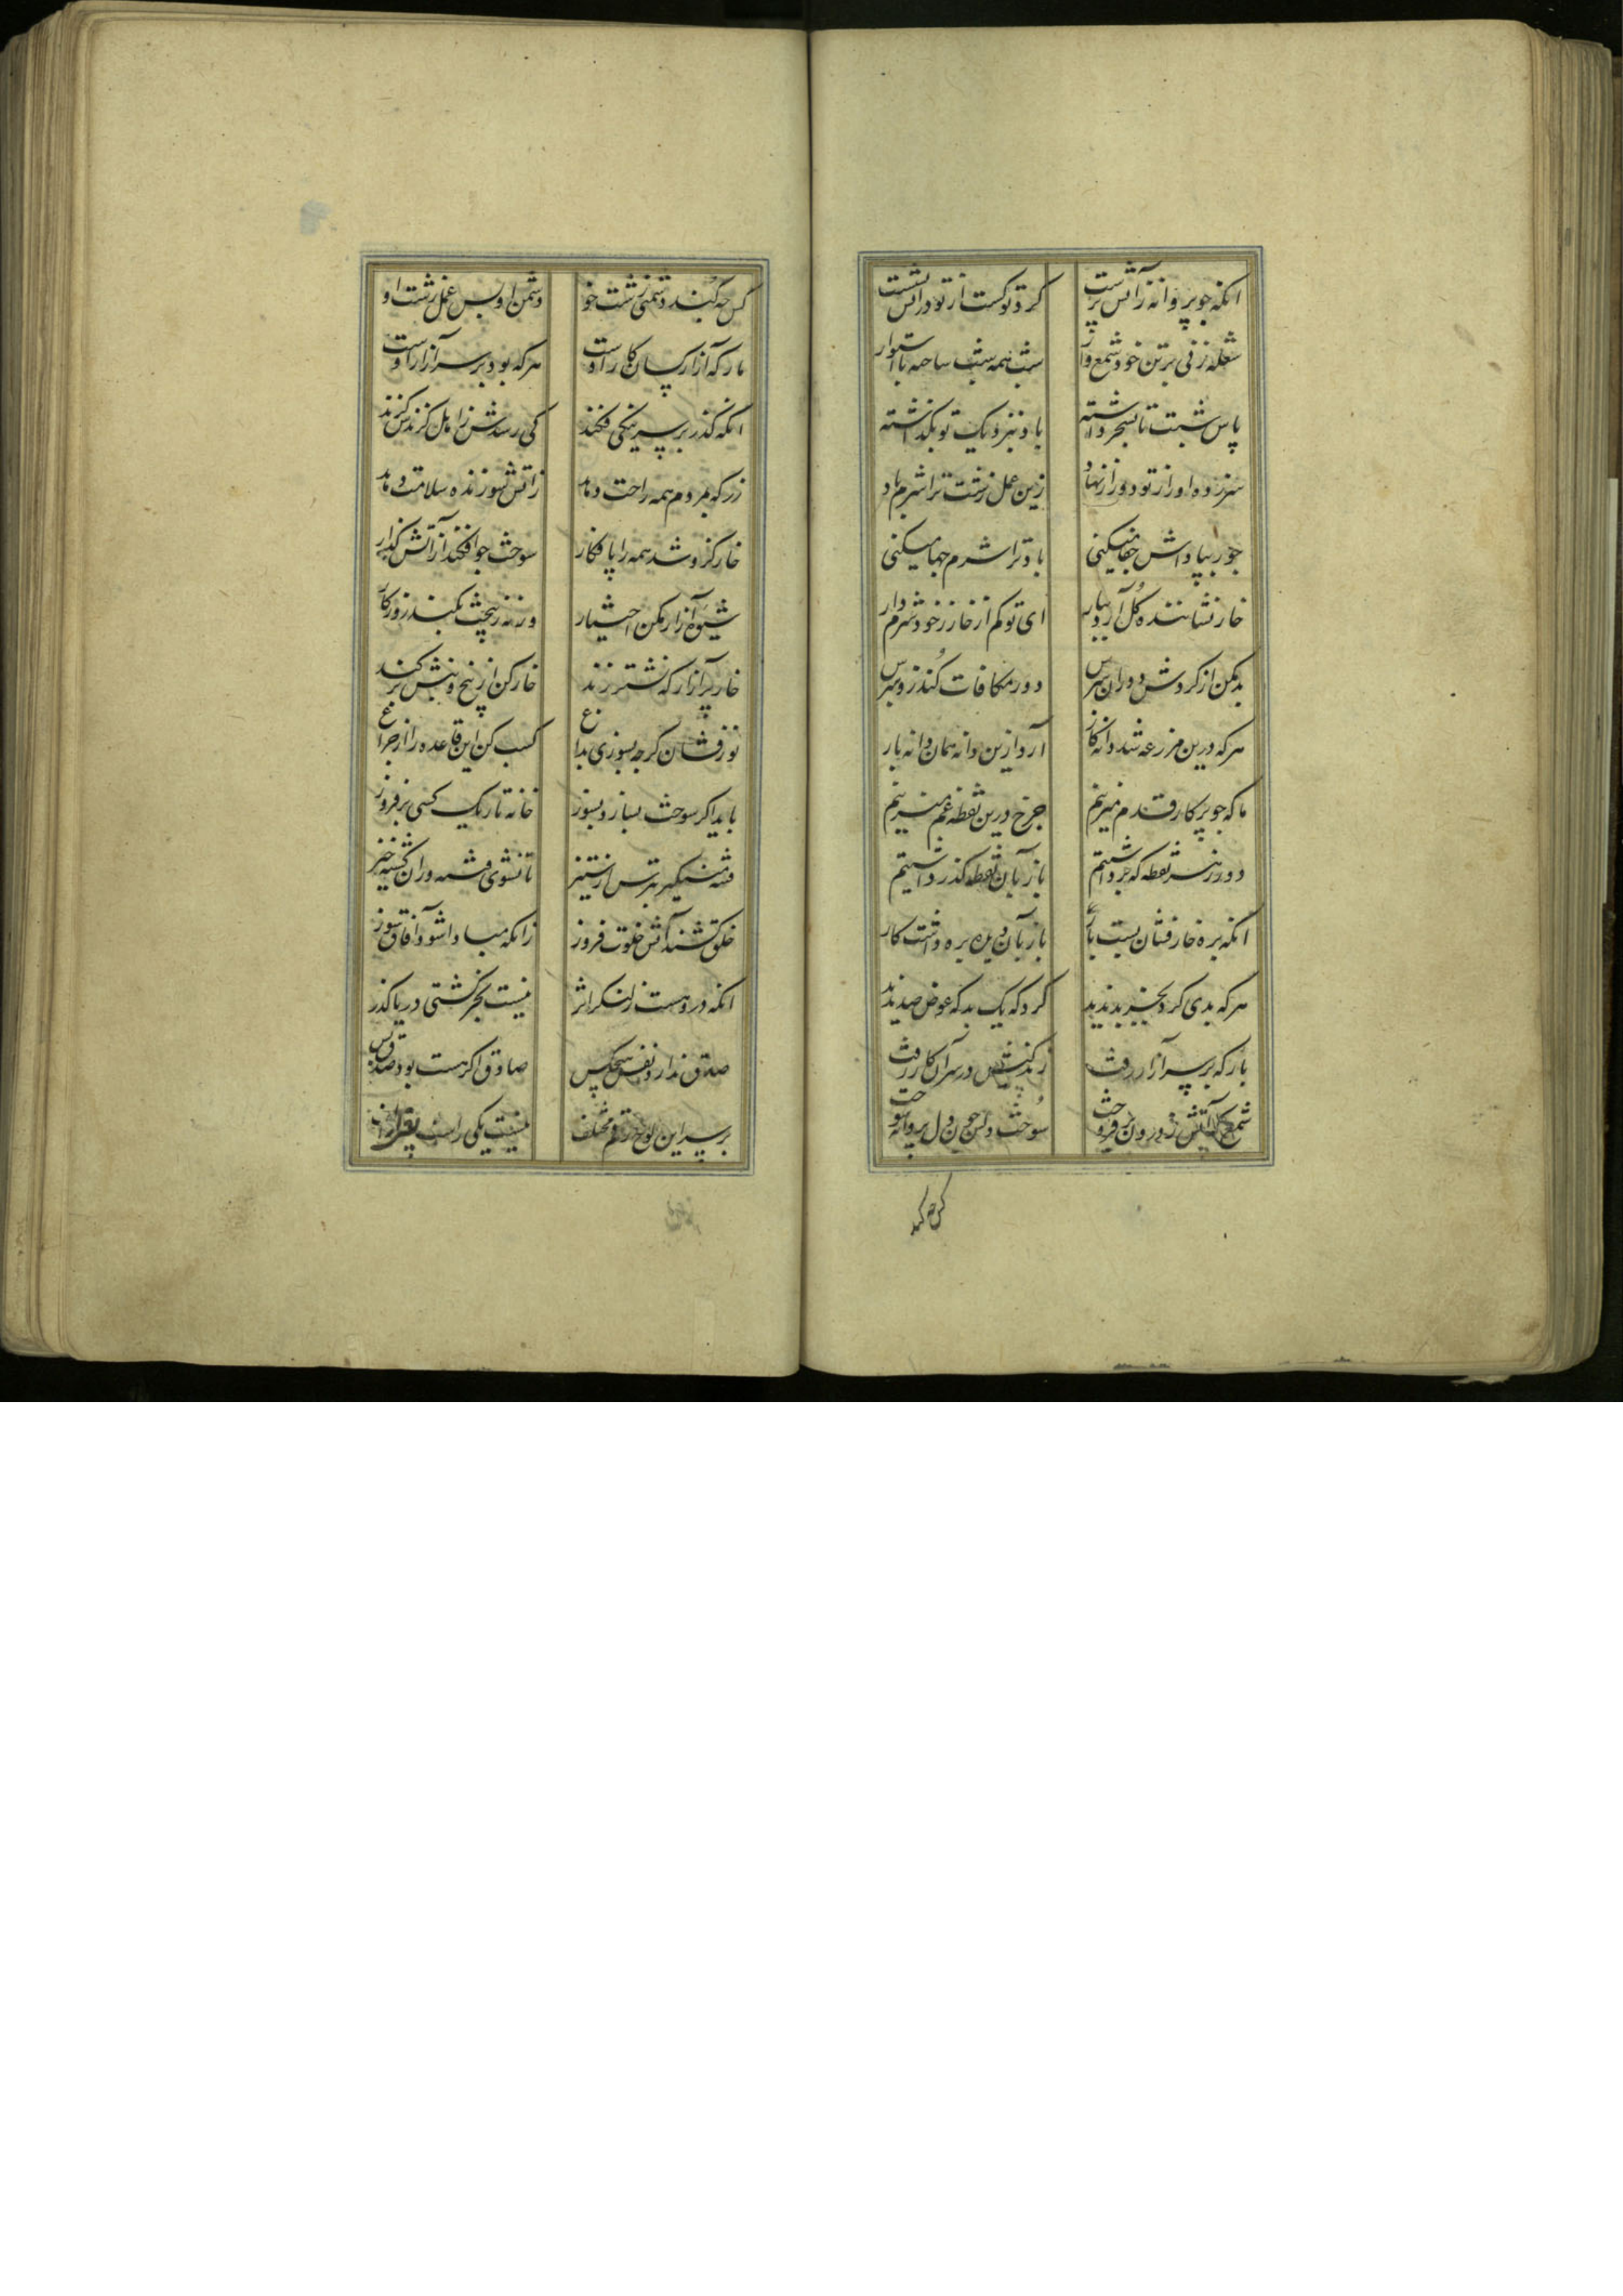 انکه جو پروانه ز آتش پرست
کرد نوکست از تو در آتش نشست
شعله زنی بر تن خود شمع وار
شب همه شب ساخته با استوار
پاس شبت تا بسحر داشته
باد بنزدیک تو نگذاشته
سر زده او را ز تو دود از نهاد
زین عمل زشت ترا شرم باد
جور بپاداش جفا میکنی
باد ترا شرم جها میکنی
خار نشاننده کل آرد ببار
ای تو کم از خار ز خود شرم دار
بد مکن از کردش دوران بترس
دور مکافات کند زو بترس
هر که درین مزرعه شد دانه کار
آرد ازین دانه همان دانه بار
ما که جو پرکار قدم میزنیم
جرخ درین نقطه غم میزنیم
دور ز هر نقطه که برداشتیم
باز بآن نقطه کذر داشتیم
انکه بره خار فشان بست بار
باز بآن ره بره داشت کار
هر که بدی کرد بجز بد ندید
کرد که یک بد که عوض صد ندید
مار که بر سر آزار رفت
زندکیش در سر آن کار رفت
شمع که آتش ز درون برفروخت
سوخت دلش جون دل پروانه سوخت
کس جه کند
کس جه کند دشمنی زشت خو
دشمن او بس عمل زشت او
مار که آزار کسان کار اوست
هر که بود بر سر آزار اوست
انکه کذر بر سر نیکی فکند
کی رسدش ز اهل کزند کزند
زر که بمردم همه راحت دهد
ز آتش سوزنده سلامت دهد
خار کزو شد همه را پا فکار
سوخت جو افکند بر آتش کذار
شیوه آزار مکن اختیار
ورنه ز بیخت بکند روزکار
خار پر آزار که نشتر زند
خارکن از بیخ و بنش برکند
نور فشان کرجه بسوزی بداغ
کسب کن این قاعده را از جراغ
باید اکر سوخت بساز و بسوز
خانه تاریک کسی برفروز
فتنه مینکیز بترس از ستیز
تا نشوی فتنه دوران خیز
خلق کشند آتش خلوت فروز
زانکه مبادا شود آفاق سوز
انکه درو هست ز لنکر اثر
نیست بجز کشتی دریا کذر
صدق ندارد نفس هیچکس
صادق اکر هست بود صدق بس
بر سر این لوح رقم مختلف
نیست یکی راست بغیر از الف